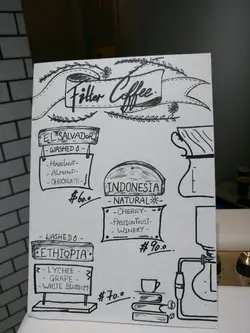 Filter Coffee.
EL SALVADOR
WASHED
- HAZELNUT
- ALMOND
- CHOCOLATE
$60.0
INDONESIA
- NATURAL
- CHERRY -
- PASSIONFRUIT -
- WINERY -
$90.0
WASHED
ETHIOPIA
- LYCHEE
- GRAPE
- WHITE BLOSSOM
$70.0